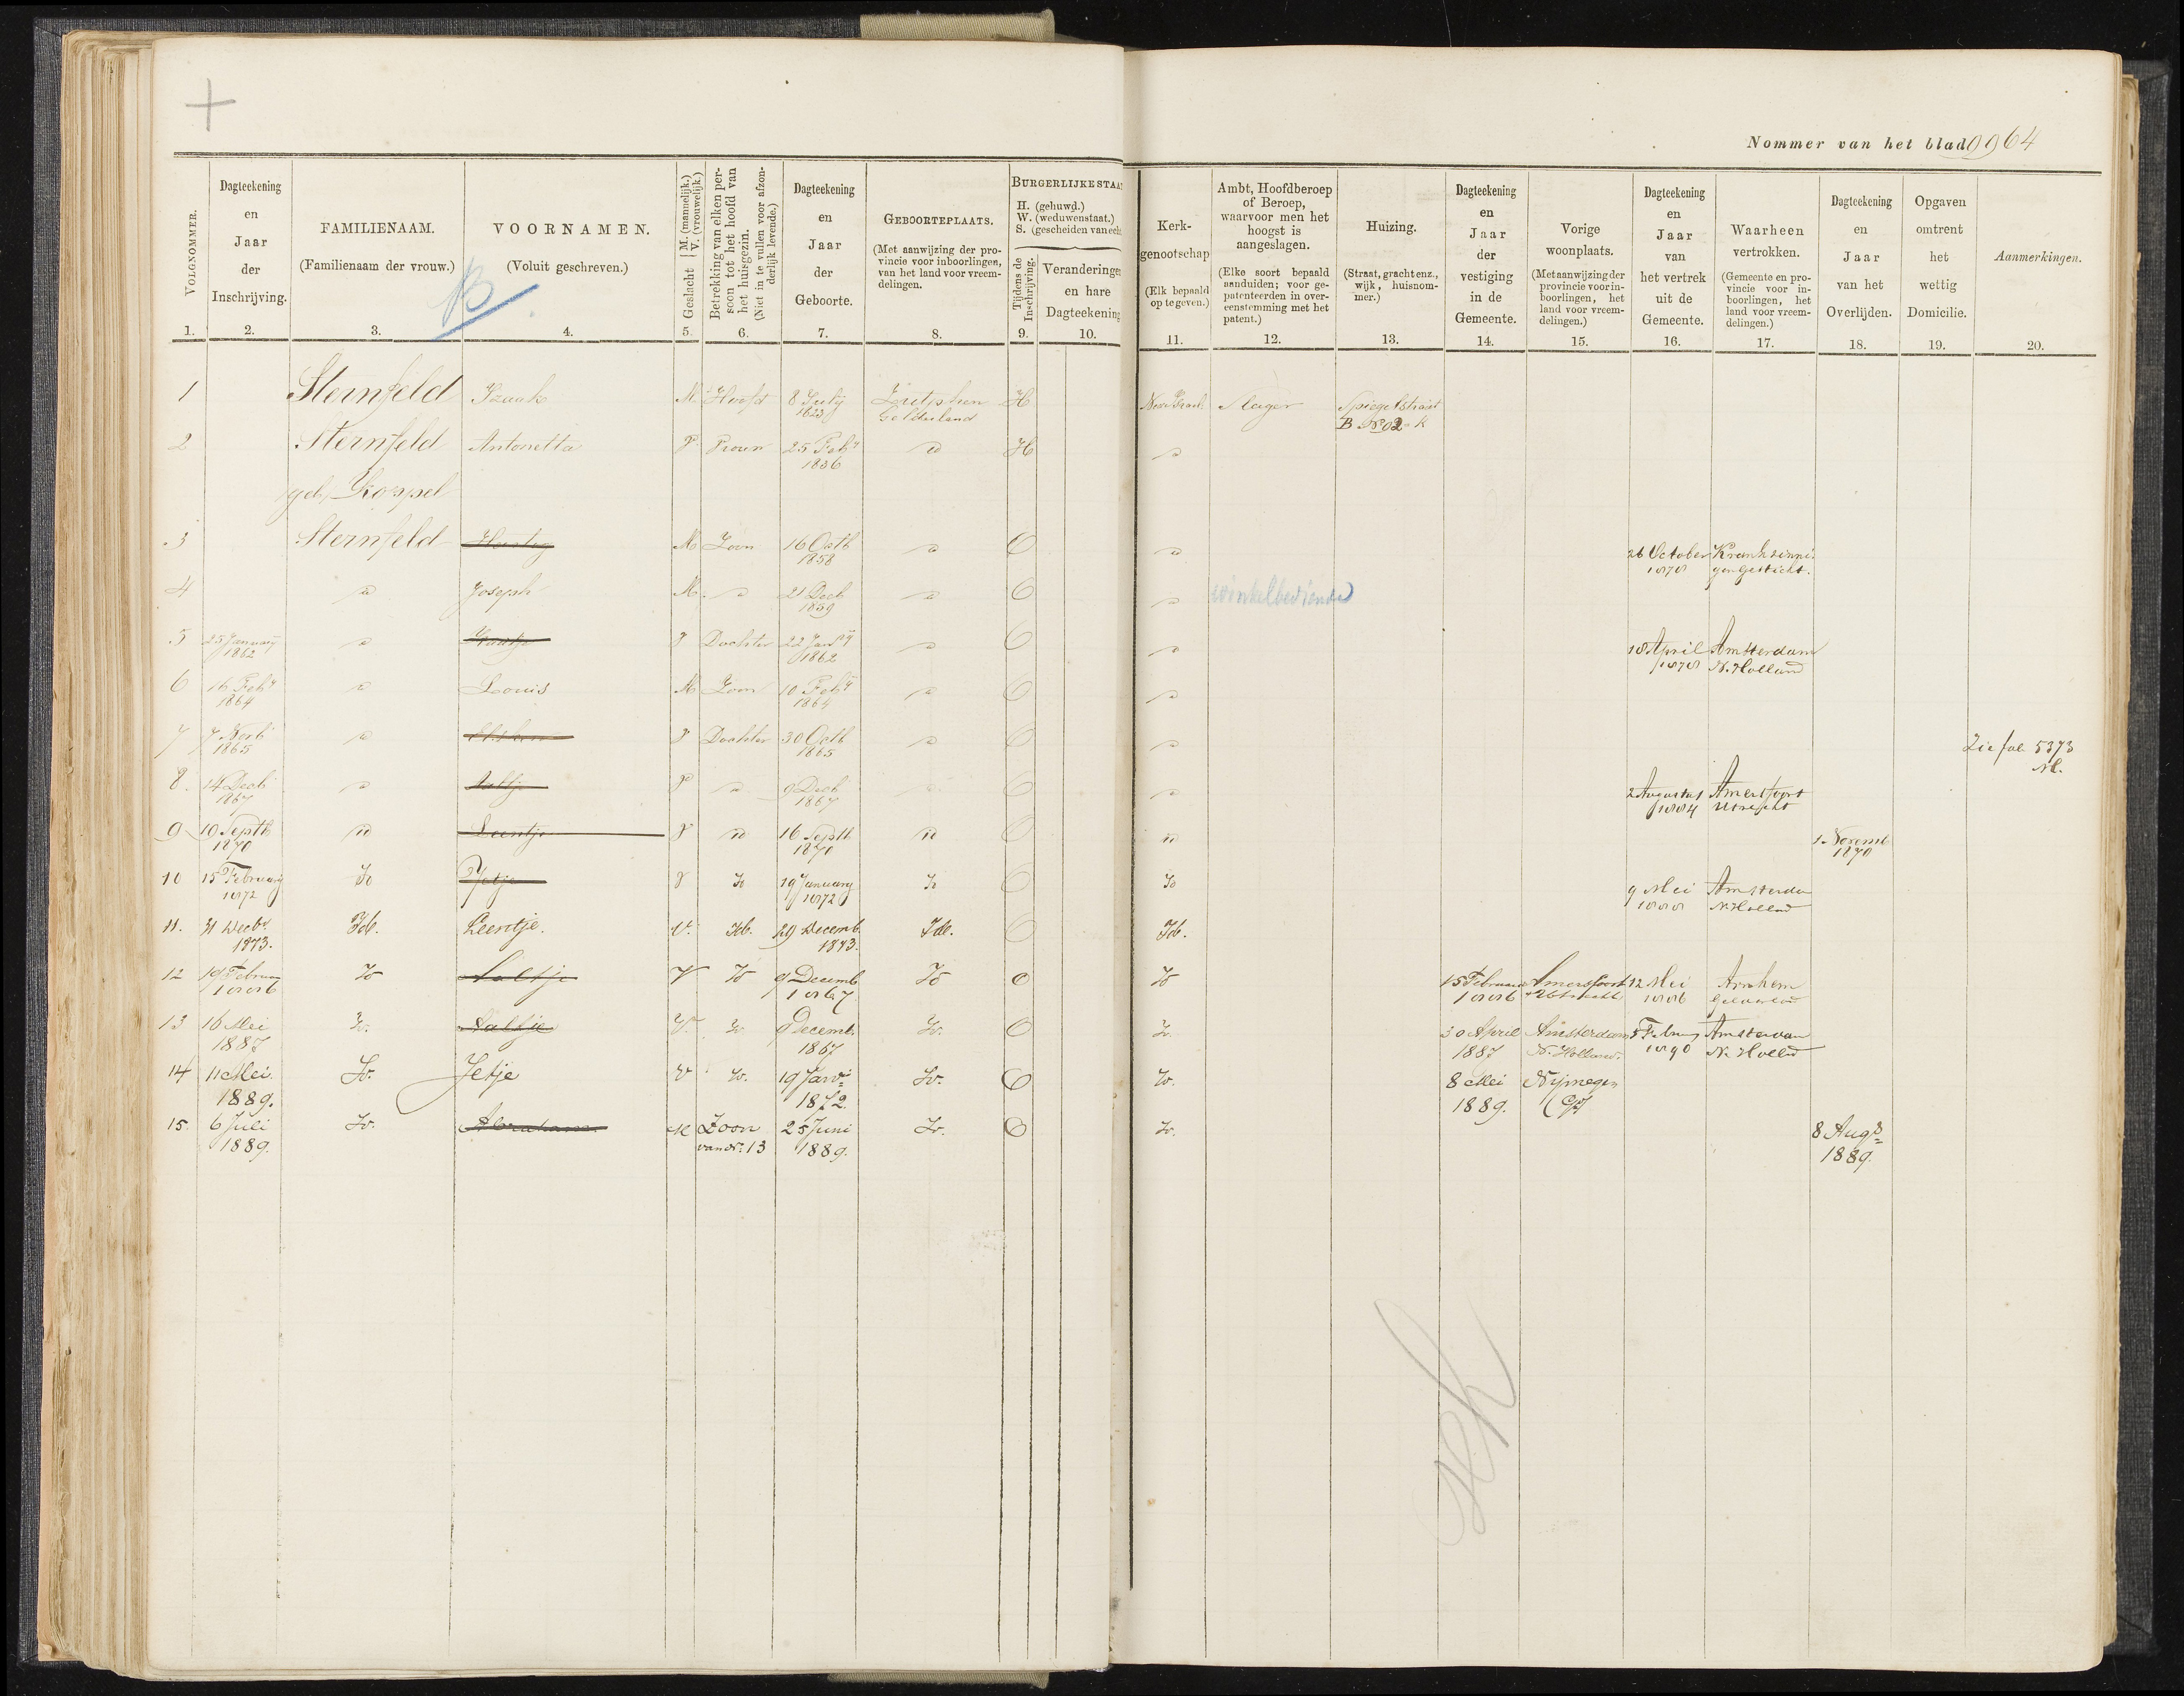 Nommer van het blad 9964
VOLGNOMMER.
Dagteekening en Jaar der Inschrijving.
FAMILIENAAM. (Familienaam der vrouw.)
VOORNAMEN. (Voluit geschreven.)
Geslacht M. (mannelijk.) V. (vrouwelijk.)
Betrekking van elken persoon tot het hoofd van het huisgezin. (Niet in te vullen voor afzonderlijk levende.)
Dagteekening en Jaar der Geboorte.
GEBOORTEPLAATS. (Met aanwijzing der provincie voor inboorlingen, van het land voor vreemdelingen.)
BURGERLIJKE STAAT
H. (gehuwd.)
W. (weduwenstaat.)
S. (gescheiden van echt
Tijdens de Inschrijving.
Veranderingen en hare Dagteekening
Kerkgenootschap (Elk bepaald op te geven.)
Ambt, Hoofdberoep of Beroep, waarvoor men het hoogst is aangeslagen. (Elke soort bepaald aanduiden; voor gepatenteerden in overeenstemming met het patent.)
Huizing. (Straat, gracht enz., wijk, huisnommer.)
Dagteekening en Jaar der vestiging in de Gemeente.
Vorige woonplaats. (Met aanwijzing der provincie voor inboorlingen, het land voor vreemdelingen.)
Dagteekening en Jaar van het vertrek uit de Gemeente.
Waarheen vertrokken. (Gemeente en provincie voor inboorlingen, het land voor vreemdelingen.)
Dagteekening en Jaar van het Overlijden.
Opgaven omtrent het wettig Domicilie.
Aanmerkingen.
1. 2. 3. 4. 5. 6. 7. 8. 9. 10. 11. 12. 13. 14. 15. 16. 17. 18. 19. 20.
B
1 Sternfeld Izaak M. Hoofd 8 Julij Zutphen H Slager Spiegelstraat
1823 Gelderland B No 02 k
2 Sternfeld Antonetta V Vrouw 25 Feby H
1836
geb. Koppel
3 Sternfeld M Zoon 16 Octb O 26 October Krankzinni
1858 1878 gen Gesticht.
4 Joseph M. 21 Decb O winkelbediende
1859
5 25 January V Dochter 22 Jany O 18 April Amsterdam
1862 1862 1878 N. Holland
6 16 Feby Louis M Zoon 10 Feby O
1864 1864
7 7 Novb V Dochter 30 Octb O Zie fol. 5373
1865 1865 M.
8. 14 Decb Aaltje V 9 Decb O 2 Augustus Amersfoort
1867 1867 1884 Utrecht
9 19 Septb Leentje V 16 Septb O 1 Novemb
1870 1870 1870
10 15 February Io Jetje V Io 19 January Io O Io 9 Mei Amsterda
1872 1872 1888 N. Holland
11. 31 Decbr Id. Leentje. V. Id. 29 Decemb. Id. O Id.
1873. 1873.
12 19 Februa Io Aaltje V Io 9 Decemb Io O Io 15 Februari Amersfoort 12 Mei Arnhem
1886 1867 1886 Utrecht 1886 Gelderland
13 16 Mei Io. Aaltje V. Io. 9 Decemb. Io. O Io. 30 April Amsterdam 5 Februay Amsterdam
1887 1867 1887 N. Holland. 1890 N. Holld
14 11 Mei. Io. Jetje V Io. 19 Jani Io. O Io. 8 Mei Nijmegen
1889. 1872. 1889. (Gd)
15. 6 Juli Io. Abraham. M Zoon 25 Juni Io. O Io. 8 Augs
1889. van No. 13 1889. 1889.